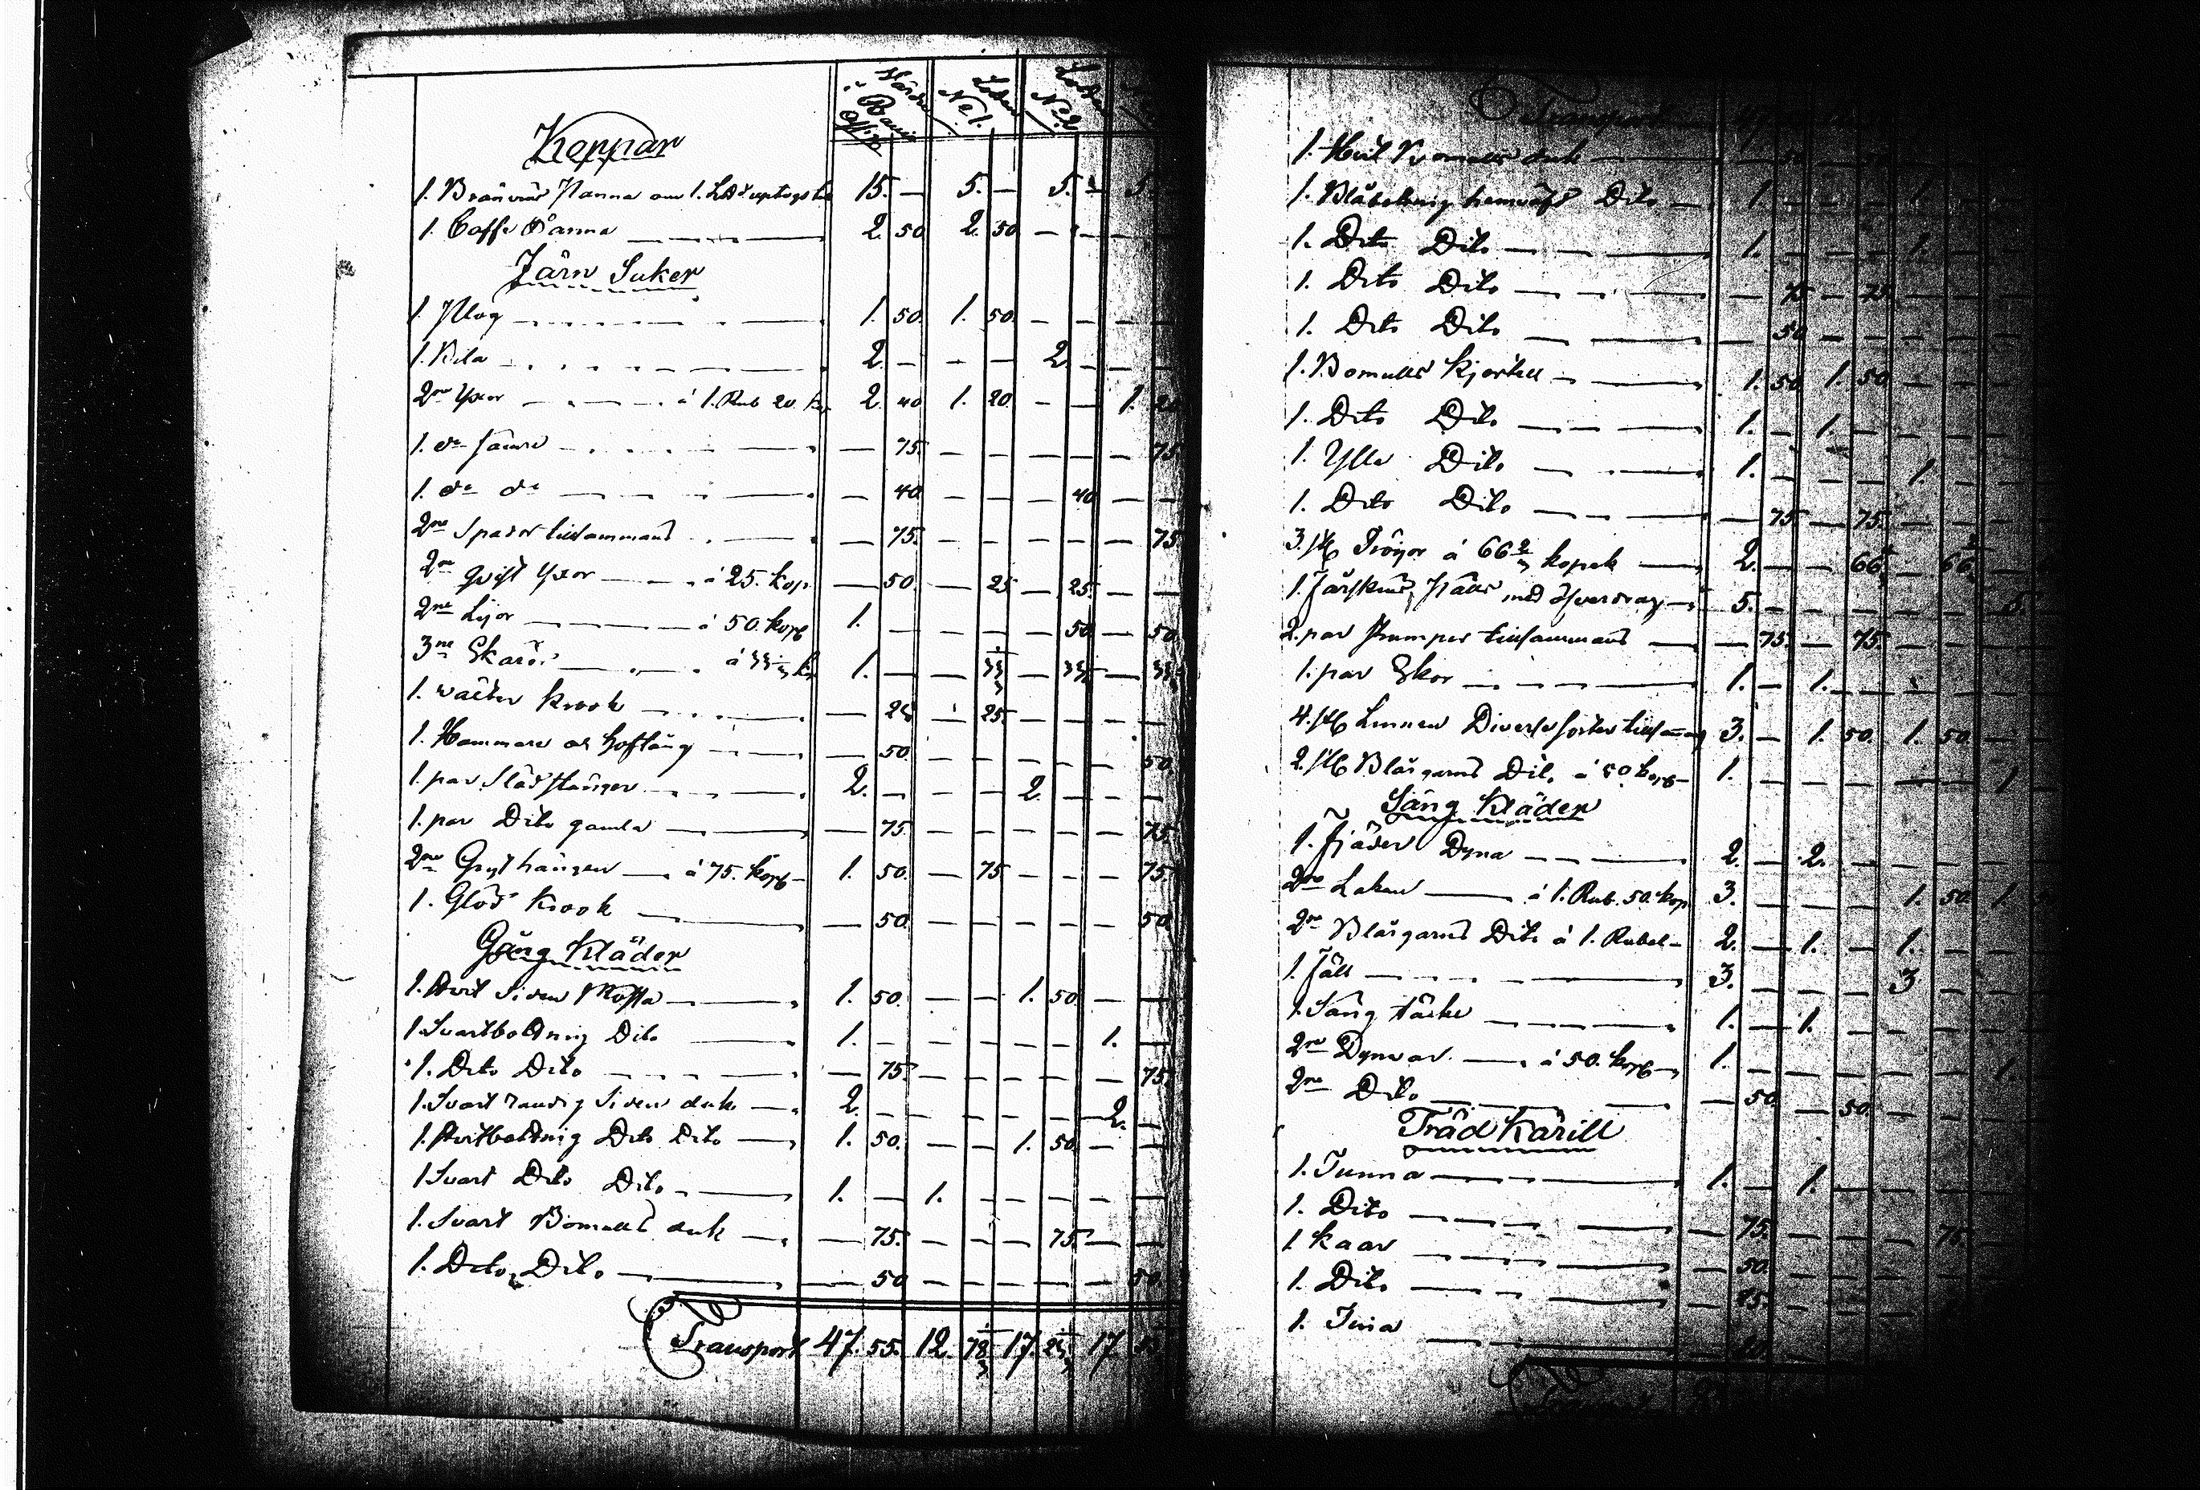 Värde i Banco Asign. Lotten No 1. Lotten No 2
Koppar
1. Bränvins Panna om 1. Lisd uptagsten 15. — 5. — 5. — 5.
1. Caffe Panna 2. 50 2. 50 — —
Järn Saker
1. Plog 1. 50. 1. 50. — —
1. Bila 2. — — — 2. —
2ne Yxor á 1. Rub 20. kop 2. 40 1. 20. — — 1. 20
1. do sämre — 75. — — — — — 75.
1. do do — 40 — — — 40 — —
2ne Spader tillsammans — 75. — — — — — 75.
2ne qvist Yxor á 25. kop. — 50. — 25 — 25. — —
2ne Lijor á 50. kop 1. — — — — 50. — 50.
3ne Skäror á 33 1/3 k. 1. — — 33 1/3 — 33 1/3 — 33 1/3
1. krook — 25 — 25. — — — —
1. Hammare och hoftång — 50. — — — — — 50.
1. par Slädstänger 2. — — — 2. — — —
1. par Dito gamla — 75. — — — — — 75.
2ne Grythängen á 75. kop 1. 50. — 75 — — — 75.
1. Glöd krook — 50. — — — — — 50.
Gång Kläder
1. Hvit Siden Mössa 1. 50. — — 1. 50. — —
1 Svartbottnig Dito 1. — — — — — 1. —
1. Dito Dito — 75. — — — — — 75.
1. Svart randig Siden duk 2. — — — — — 2. —
1. Hvitbottnig Dito Dito 1. 50. — — 1. 50. — —
1 Svart Dito Dito 1. — 1. — — — — —
1. Svart Bomulls duk — 75. — — — 75. — —
1. Dito Dito — 50 — — — — — 50.
Transport 47. 55. 12. 78 1/3 17. 23 1/3 17.
Transport
1. Hvit Bomulls duk — 50
1. Blåbottnig hemväfd Dito 1. — — — 1.
1. Dito Dito 1. — — — 1.
1. Dito Dito — 75 — 75
1. Dito Dito — 50 — —
1. Bomulls Kjortell 1. 50 1. 50 — —
1. Dito Dito 1. — 1. —
1. Ylle Dito 1. — — — 1.
1. Dito Dito — 75. — 75. — —
3. st Tröjor á 66 2/3 kopek 2. — — 66 2/3 — 66 2/3
1. Fårskins Päls med Öfverdrag 5. — — — — — 5.
2. par Strumpor tillsammans — 75. — 75. — —
1. par Skor 1. — 1. — — —
4. st Linnen Diverse sorter tillsammans 3. — 1. 50. 1. 50.
2. st Blårgarns Dito á 50 kop 1. — — — — — 1.
Säng Kläder
1. Fjäder Dyna 2. — 2. — — —
2ne Lakan á 1. Rub. 50. kop 3. — — — 1. 50 1. 50
2ne Blårgarns Dito á 1. Rubel 2. — 1. — 1. —
1. Fäll 3. — — — 3 —
1. Säng täcke 1. — 1. — — —
2ne Dynvar á 50. kop 1. — — — — — 1.
2ne Dito — 50. — 50. — —
Träd Kärill
1. Tunna 1. — 1. — — —
1. Dito — 75. — — — 75.
1 kaar — 50. — — — —
1. Dito — 75. — — — —
1. Tina